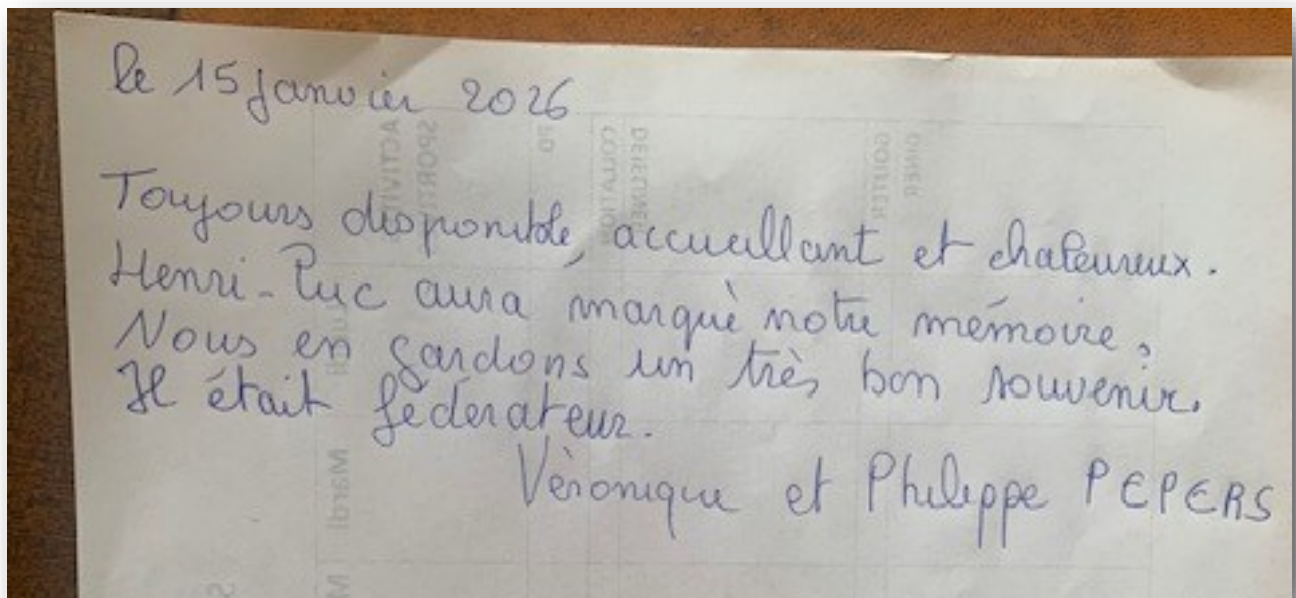 le 15 janvier 2026
Toujours disponible, accueillant et chaleureux.
Henri-Luc aura marqué notre mémoire.
Nous en gardons un très bon souvenir.
Il était fédérateur.
Véronique et Philippe PEPERS